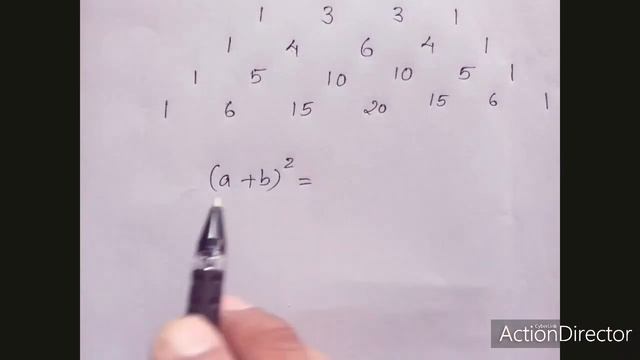 1 3 3 1
1 4 6 4 1
1 5 10 10 5 1
1 6 15 20 15 6 1
(a + b)² =
CyberLink
ActionDirector